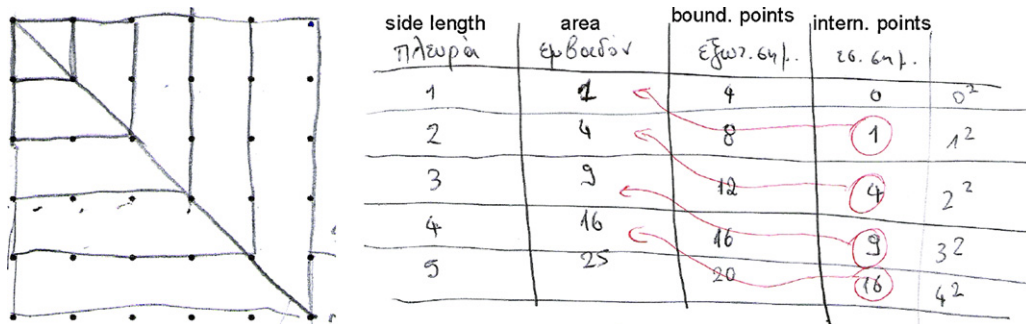 side length area bound. points intern. points
πλευρά εμβαδόν εξωτ. σημ. εσ. σημ.
1 1 4 0 0²
2 4 8 1 1²
3 9 12 4 2²
4 16 16 9 3²
5 25 20 16 4²